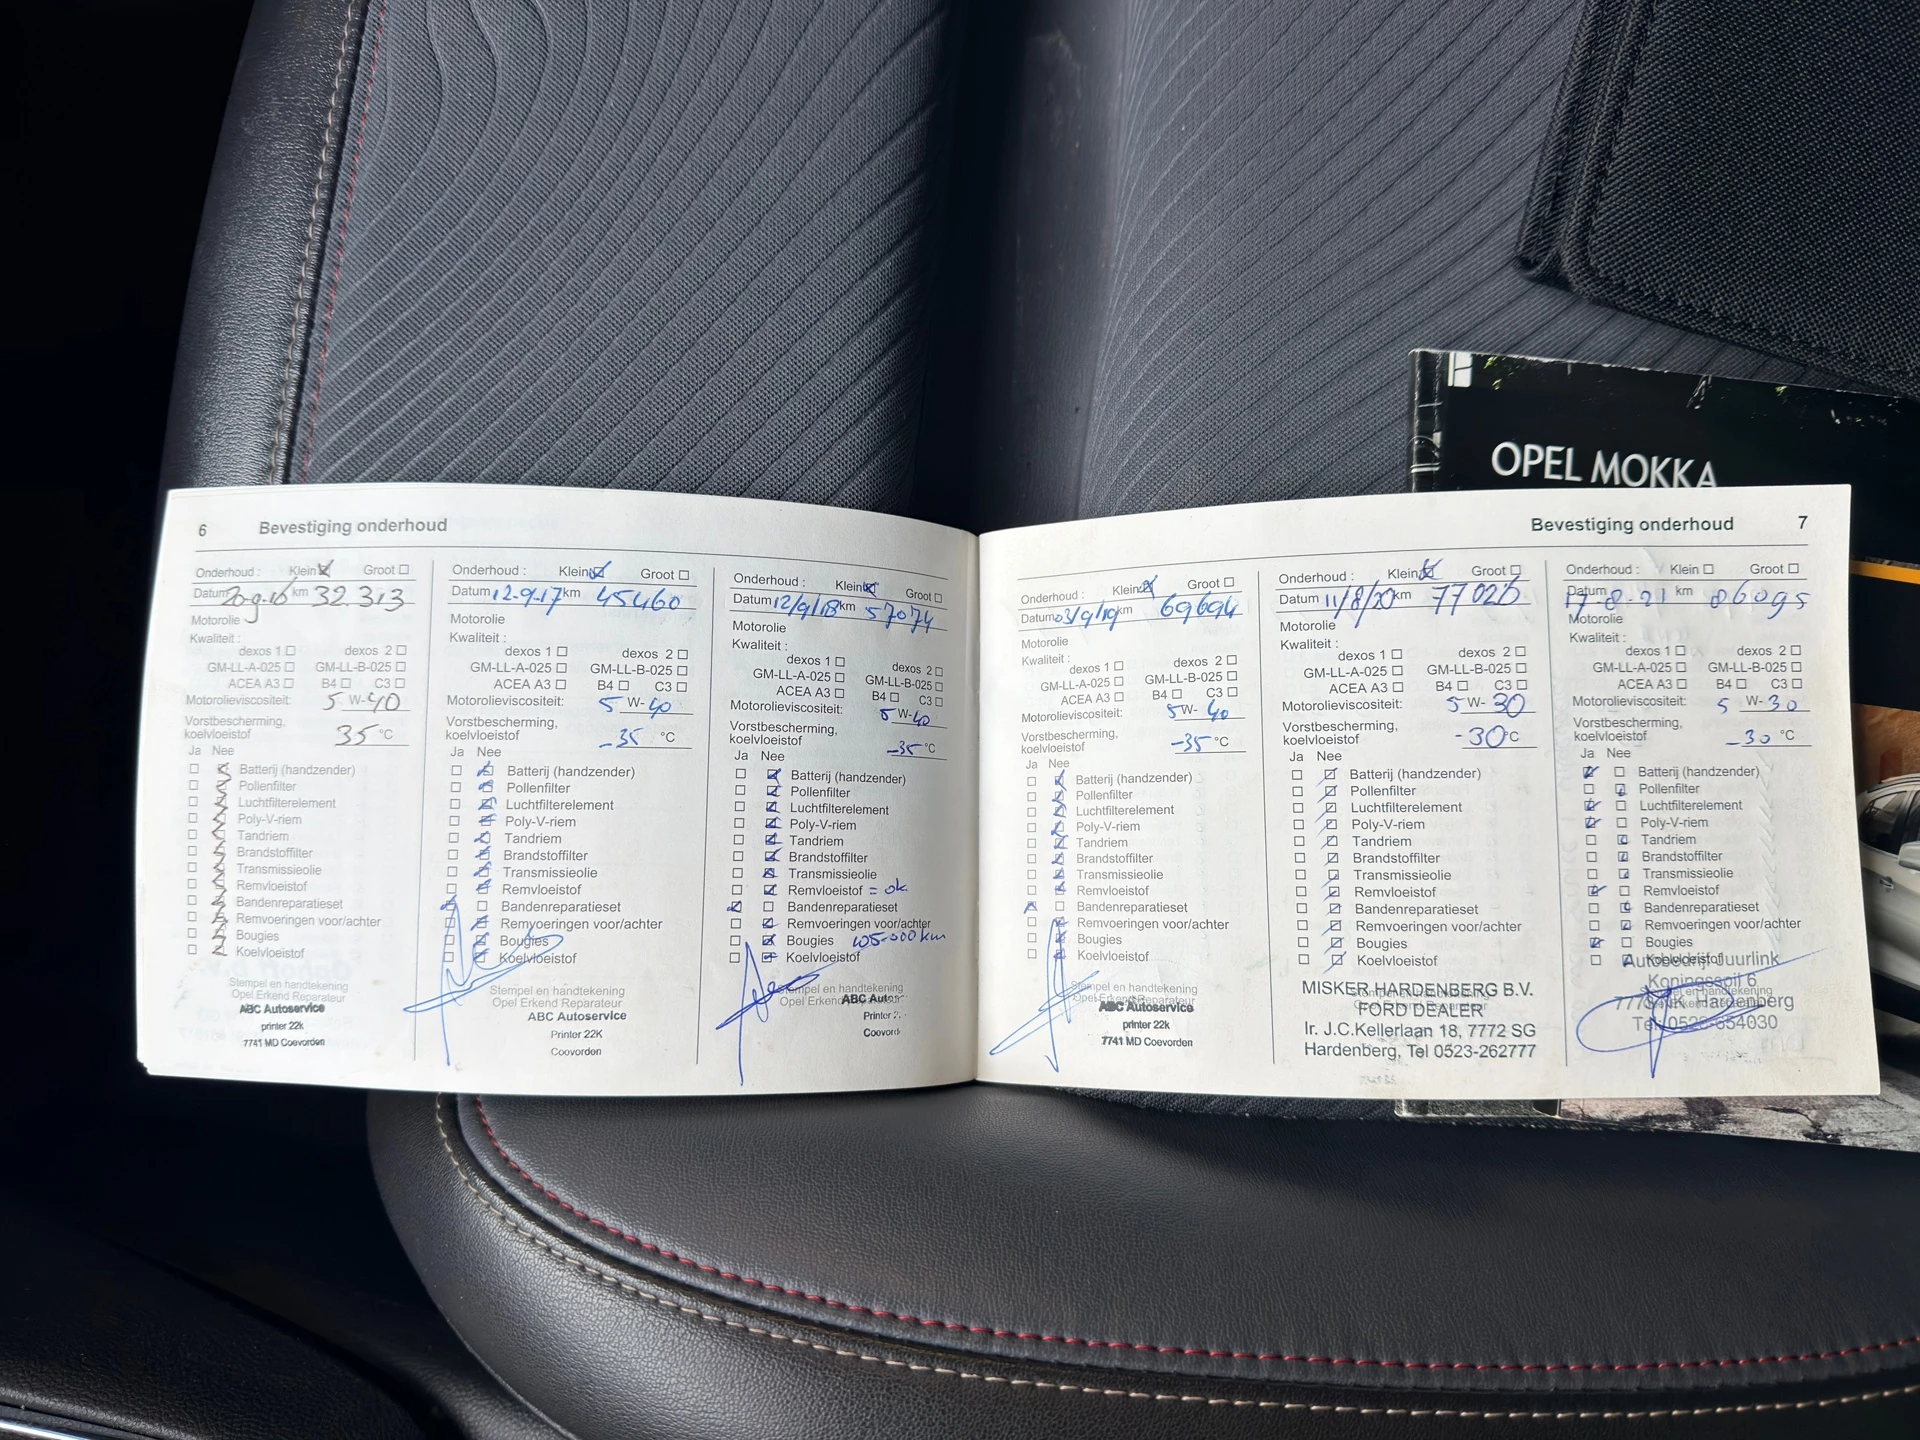 OPEL MOKKA
6 Bevestiging onderhoud
Onderhoud : Klein ☒ Groot ☐
Datum 20-9-16 km 32.313
Motorolie
Kwaliteit :
dexos 1 ☐ dexos 2 ☐
GM-LL-A-025 ☐ GM-LL-B-025 ☐
ACEA A3 ☐ B4 ☐ C3 ☐
Motorolieviscositeit: 5 W-40
Vorstbescherming,
koelvloeistof 35 °C
Ja Nee
Batterij (handzender)
Pollenfilter
Luchtfilterelement
Poly-V-riem
Tandriem
Brandstoffilter
Transmissieolie
Remvloeistof
Bandenreparatieset
Remvoeringen voor/achter
Bougies
Koelvloeistof
Stempel en handtekening
Opel Erkend Reparateur
ABC Autoservice
printer 22k
7741 MD Coevorden
Onderhoud : Klein ☒ Groot ☐
Datum 12-9-17 km 45460
Motorolie
Kwaliteit :
dexos 1 ☐ dexos 2 ☐
GM-LL-A-025 ☐ GM-LL-B-025 ☐
ACEA A3 ☐ B4 ☐ C3 ☐
Motorolieviscositeit: 5 W-40
Vorstbescherming,
koelvloeistof -35 °C
Ja Nee
Batterij (handzender)
Pollenfilter
Luchtfilterelement
Poly-V-riem
Tandriem
Brandstoffilter
Transmissieolie
Remvloeistof
Bandenreparatieset
Remvoeringen voor/achter
Bougies
Koelvloeistof
Stempel en handtekening
Opel Erkend Reparateur
ABC Autoservice
Printer 22K
Coevorden
Onderhoud : Klein ☒ Groot ☐
Datum 12/9/18 km 57074
Motorolie
Kwaliteit :
dexos 1 ☐ dexos 2 ☐
GM-LL-A-025 ☐ GM-LL-B-025 ☐
ACEA A3 ☐ B4 ☐ C3 ☐
Motorolieviscositeit: 5 W-40
Vorstbescherming,
koelvloeistof -35 °C
Ja Nee
Batterij (handzender)
Pollenfilter
Luchtfilterelement
Poly-V-riem
Tandriem
Brandstoffilter
Transmissieolie
Remvloeistof = ok
Bandenreparatieset
Remvoeringen voor/achter
Bougies 105.000 km
Koelvloeistof
Stempel en handtekening
Opel Erkend
ABC Autor
Printer 2
Coevord
Bevestiging onderhoud 7
Onderhoud : Klein ☒ Groot ☐
Datum 03/9/19 km 69694
Motorolie
Kwaliteit :
dexos 1 ☐ dexos 2 ☐
GM-LL-A-025 ☐ GM-LL-B-025 ☐
ACEA A3 ☐ B4 ☐ C3 ☐
Motorolieviscositeit: 5 W-40
Vorstbescherming,
koelvloeistof -35 °C
Ja Nee
Batterij (handzender)
Pollenfilter
Luchtfilterelement
Poly-V-riem
Tandriem
Brandstoffilter
Transmissieolie
Remvloeistof
Bandenreparatieset
Remvoeringen voor/achter
Bougies
Koelvloeistof
Stempel en handtekening
Opel Erkend Reparateur
ABC Autoservice
printer 22k
7741 MD Coevorden
Onderhoud : Klein ☒ Groot ☐
Datum 11/8/20 km 77026
Motorolie
Kwaliteit :
dexos 1 ☐ dexos 2 ☐
GM-LL-A-025 ☐ GM-LL-B-025 ☐
ACEA A3 ☐ B4 ☐ C3 ☐
Motorolieviscositeit: 5 W-30
Vorstbescherming,
koelvloeistof -30 °C
Ja Nee
Batterij (handzender)
Pollenfilter
Luchtfilterelement
Poly-V-riem
Tandriem
Brandstoffilter
Transmissieolie
Remvloeistof
Bandenreparatieset
Remvoeringen voor/achter
Bougies
Koelvloeistof
MISKER HARDENBERG B.V.
FORD DEALER
Ir. J.C.Kellerlaan 18, 7772 SG
Hardenberg, Tel 0523-262777
Onderhoud : Klein ☐ Groot ☐
Datum 17-8-21 km 86095
Motorolie
Kwaliteit :
dexos 1 ☐ dexos 2 ☐
GM-LL-A-025 ☐ GM-LL-B-025 ☐
ACEA A3 ☐ B4 ☐ C3 ☐
Motorolieviscositeit: 5 W-30
Vorstbescherming,
koelvloeistof -30 °C
Ja Nee
Batterij (handzender)
Pollenfilter
Luchtfilterelement
Poly-V-riem
Tandriem
Brandstoffilter
Transmissieolie
Remvloeistof
Bandenreparatieset
Remvoeringen voor/achter
Bougies
Koelvloeistof
Autobedrijf Juurlink
Koningsspil 6
Stempel en handtekening
Hardenberg
Tel. 0523-654030